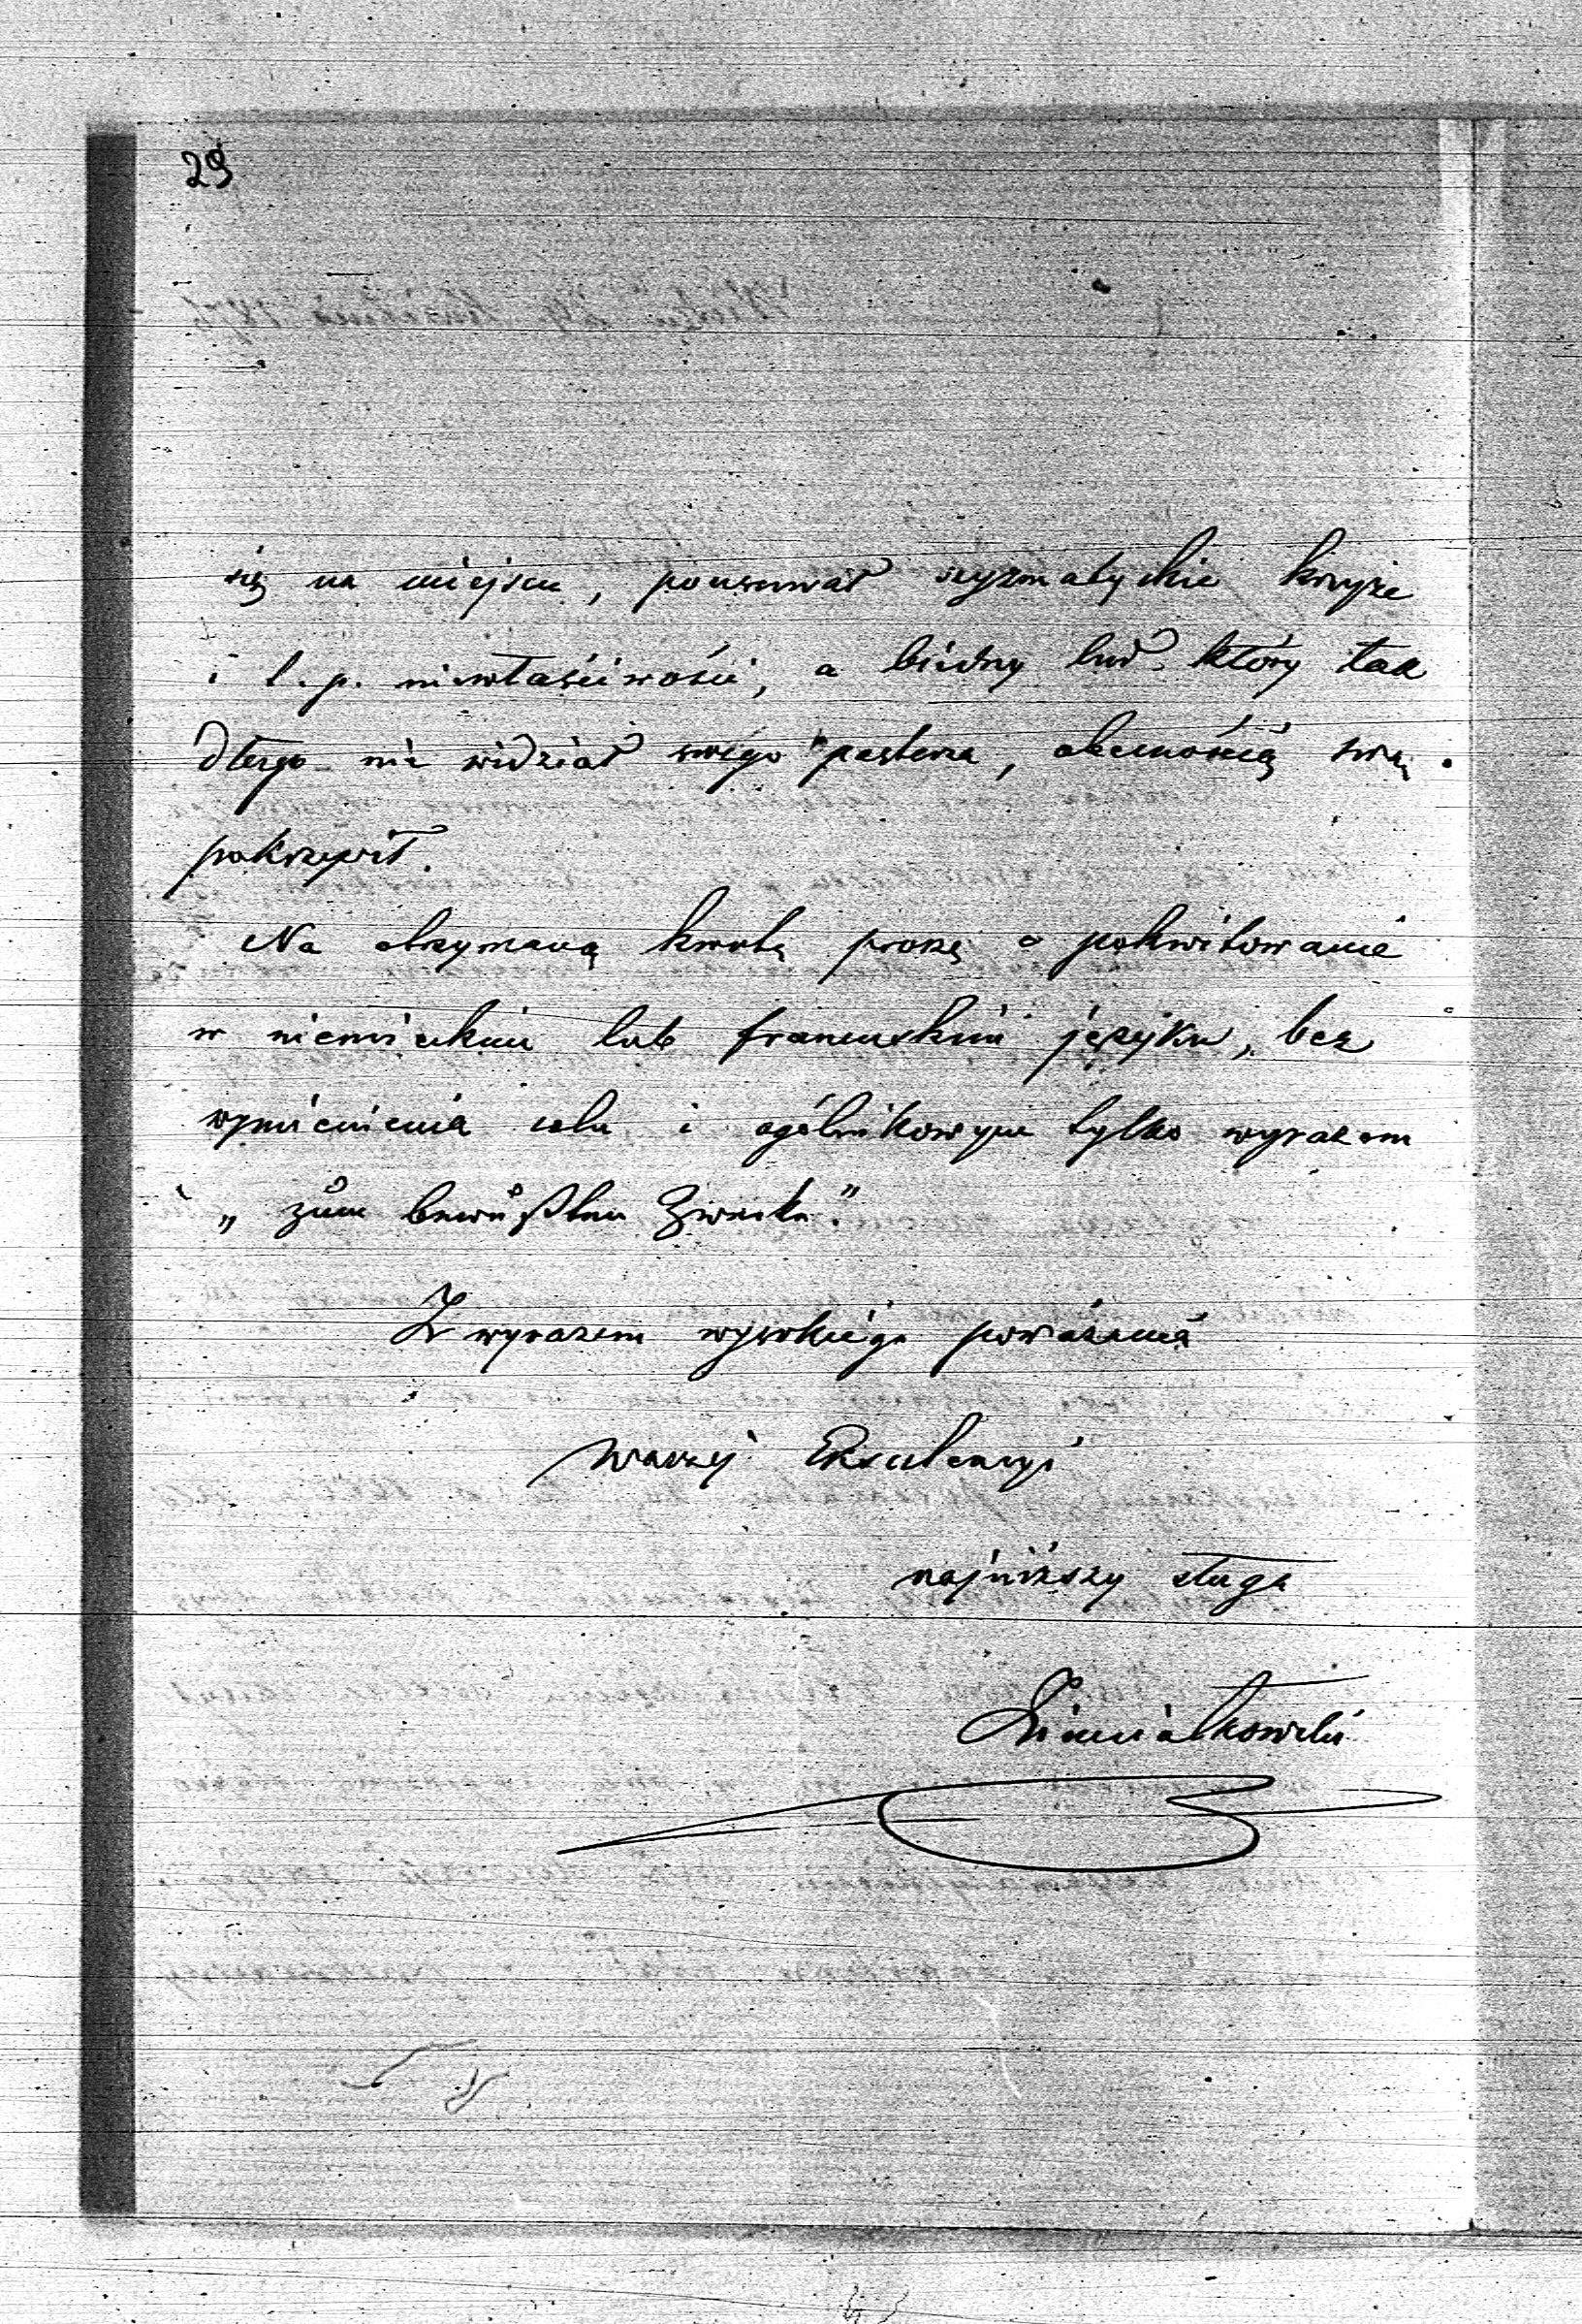 29
się na miejscu, pousuwał szyzmatyckie krzyże
i t.p. niewłaściwości, a biedny lud który tak
długo nie widział swego pasterza, obecnością swą
pokrzepił.
Na otrzymaną kwotę proszę o pokwitowanie
w niemieckim lub francuskim języku, bez
wymienienia celu i ogólnikowym tylko wyrazem
„zum bewußten Zwecke."
Z wyrazem wysokiego poważania
Waszej Ekscelencyi
najniższy sługa
Ziemiałkowski